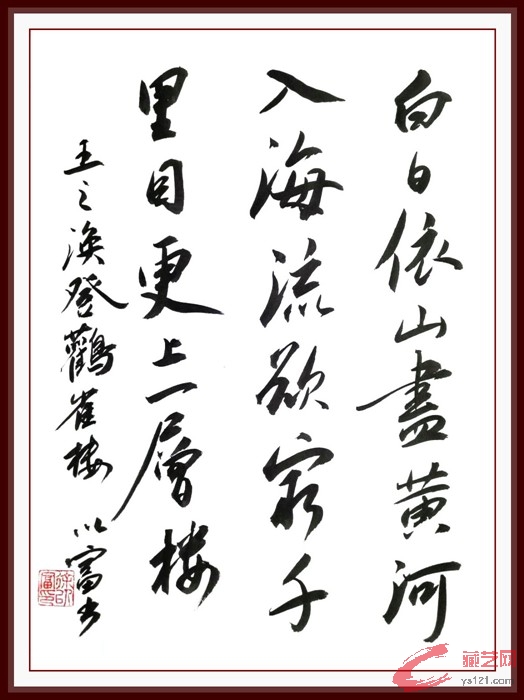 白日依山盡黄河
入海流欲窮千
里目更上一層楼
王之涣登鸛雀楼 以富书
藏艺网
ys121.com